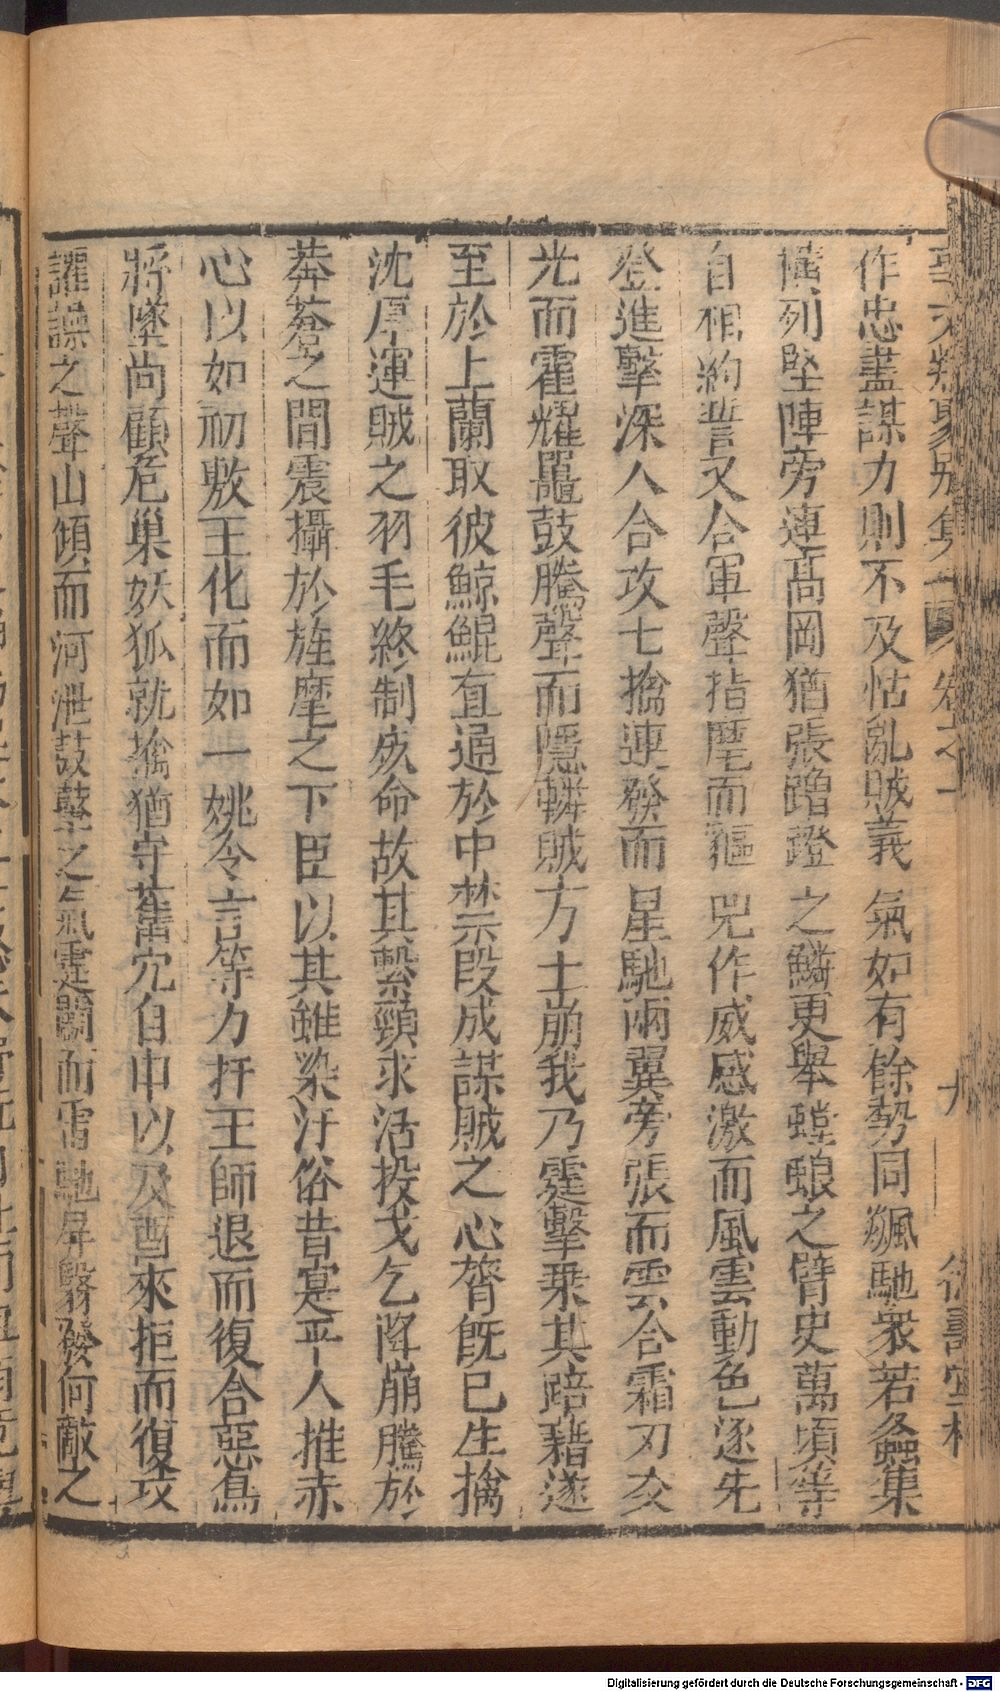 作忠盡謀力則不及怙亂賊義氣如有餘勢同飊馳衆若螽集
橫列堅陣旁連高岡猶張蹭蹬之鱗更舉螳蜋之臂史萬頃等
自相約誓又合軍聲指麾而貙兕作威感激而風雲動色逐先
登進擊深入合攻七擒連發而星馳兩翼旁張而雲合霜刃交
光而霍耀鼉鼓騰聲而隱轔賊方土崩我乃霆擊乗其踣藉遂
至於上蘭取彼鯨鯤直通於中禁叚成謀賊之心膂旣已生擒
沈厚運賊之羽毛終制成命故其繫頸求活投戈乞降崩騰於
莽蒼之間震攝於旌麾之下臣以其雖染汙俗昔寔平人推赤
心以如初敷王化而如一姚令言等力扞王師退而復合惡鳥
將墜尚顧危巢妖狐就擒猶守舊穴自申以及酉來拒而復攻
讙譟之聲山傾而河泄鼓鼙之氣霆鬬而雷馳屛翳發何敵之
聖文類聚別集 卷之 九
Digitalisierung gefördert durch die Deutsche Forschungsgemeinschaft - DFG